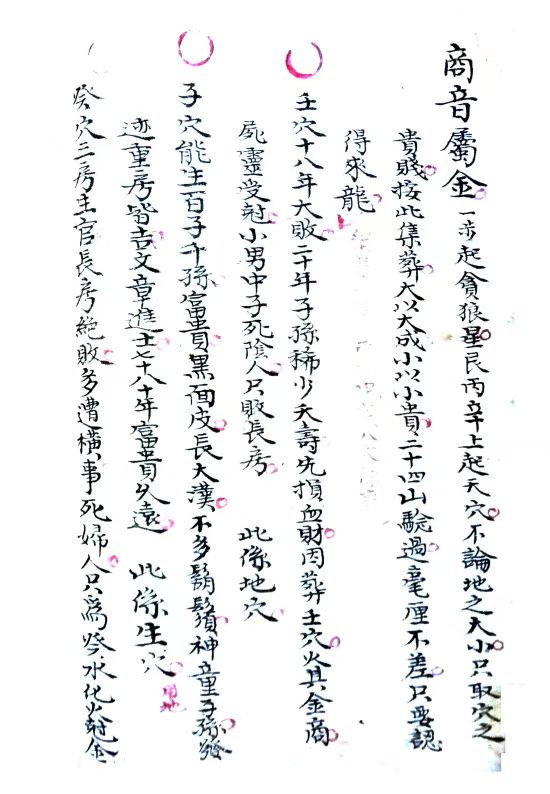 商音屬金一步起貪狼星艮丙辛上起天穴不論地之大小只取穴之
貴賤按此集葬大以大成小以小貴二十四山驗過毫厘不差只要認
得來龍
壬穴十八年大敗二十年子孫稀少夭壽先損血財因葬壬穴火具金商
屍靈受尅小男中子死陰人只敗長房 此係地穴
子穴能生百子千孫富貴黑面皮長大漢不多鬍鬚神童子孫發
迹重房皆吉文章進士七十八十年富貴久遠 此係生穴
癸穴三房主官長房絶敗多遭橫事死婦人只爲癸水化火尅金